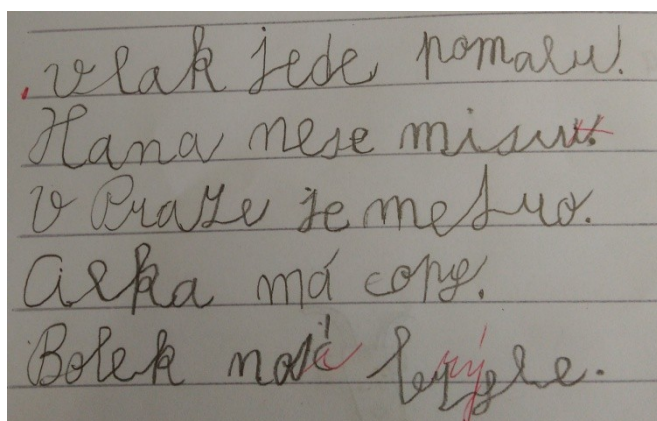 vlak jede pomalu.
Hana nese misu.
V Praze je metro.
Alka má copy.
Bolek nosí